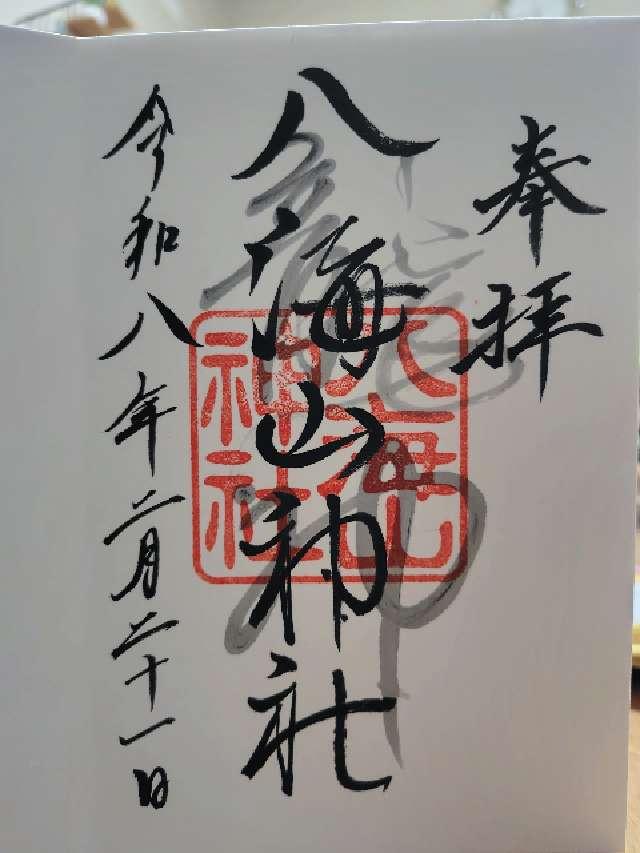 奉拝
八海山神社
八海山
神社
令和八年二月二十一日